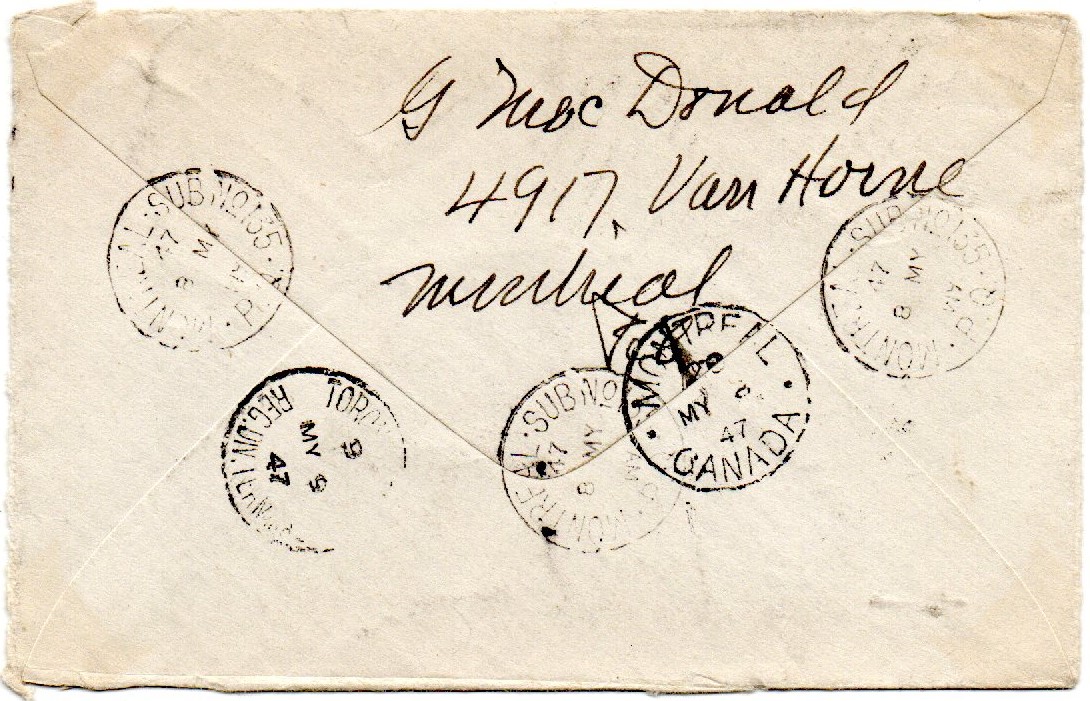 G MacDonald
4917, Van Horne
Montreal
MONTREAL · SUB NO 135 · P.Q.
AM
8 MY
47
MONTREAL · SUB NO 135 · P.Q.
AM
8 MY
47
MONTREAL · SUB NO
AM
8 MY
47
MONTREAL
MY 8
47
CANADA
TORO
9
MY 9
47
REG. DIV.